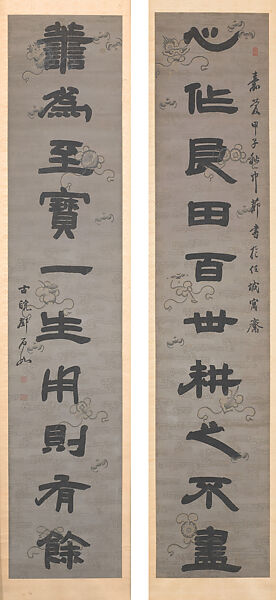 嘉慶甲子秌中節書於任城寓齋
心作良田百世耕之不盡
譱為至寶一生用則有餘
古皖鄧石如